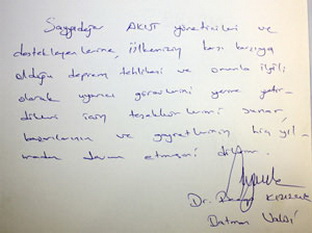 Saygıdeğer AKUT yöneticileri ve
destekleyenlerine, ülkemizin karşı karşıya
olduğu deprem tehlikesi ve onunla ilgili
olarak uyarıcı görevlerini yerine getir-
dikleri için teşekkürlerimi sunar,
başarılarının ve gayretlerinin hiç yıl-
madan devam etmesini dilerim.
Dr.
Batman Valisi